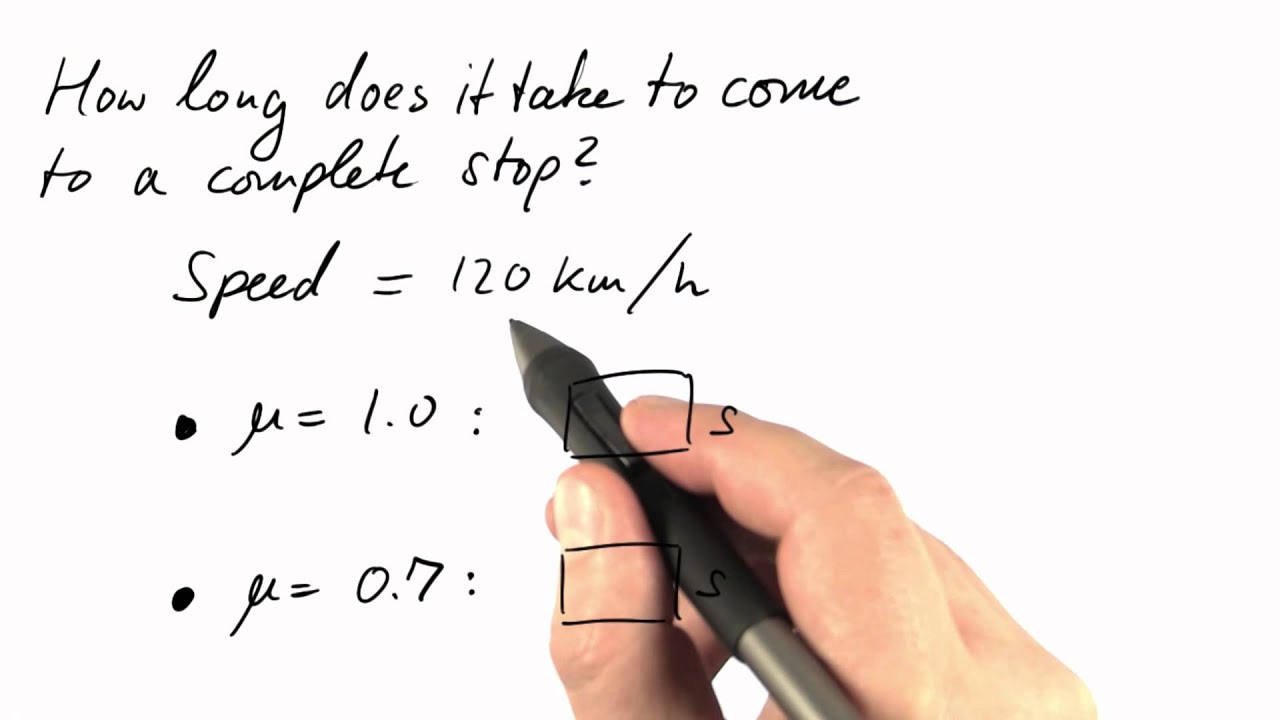 How long does it take to come
to a complete stop?
Speed = 120 km/h
• μ = 1.0 : s
• μ = 0.7 : s